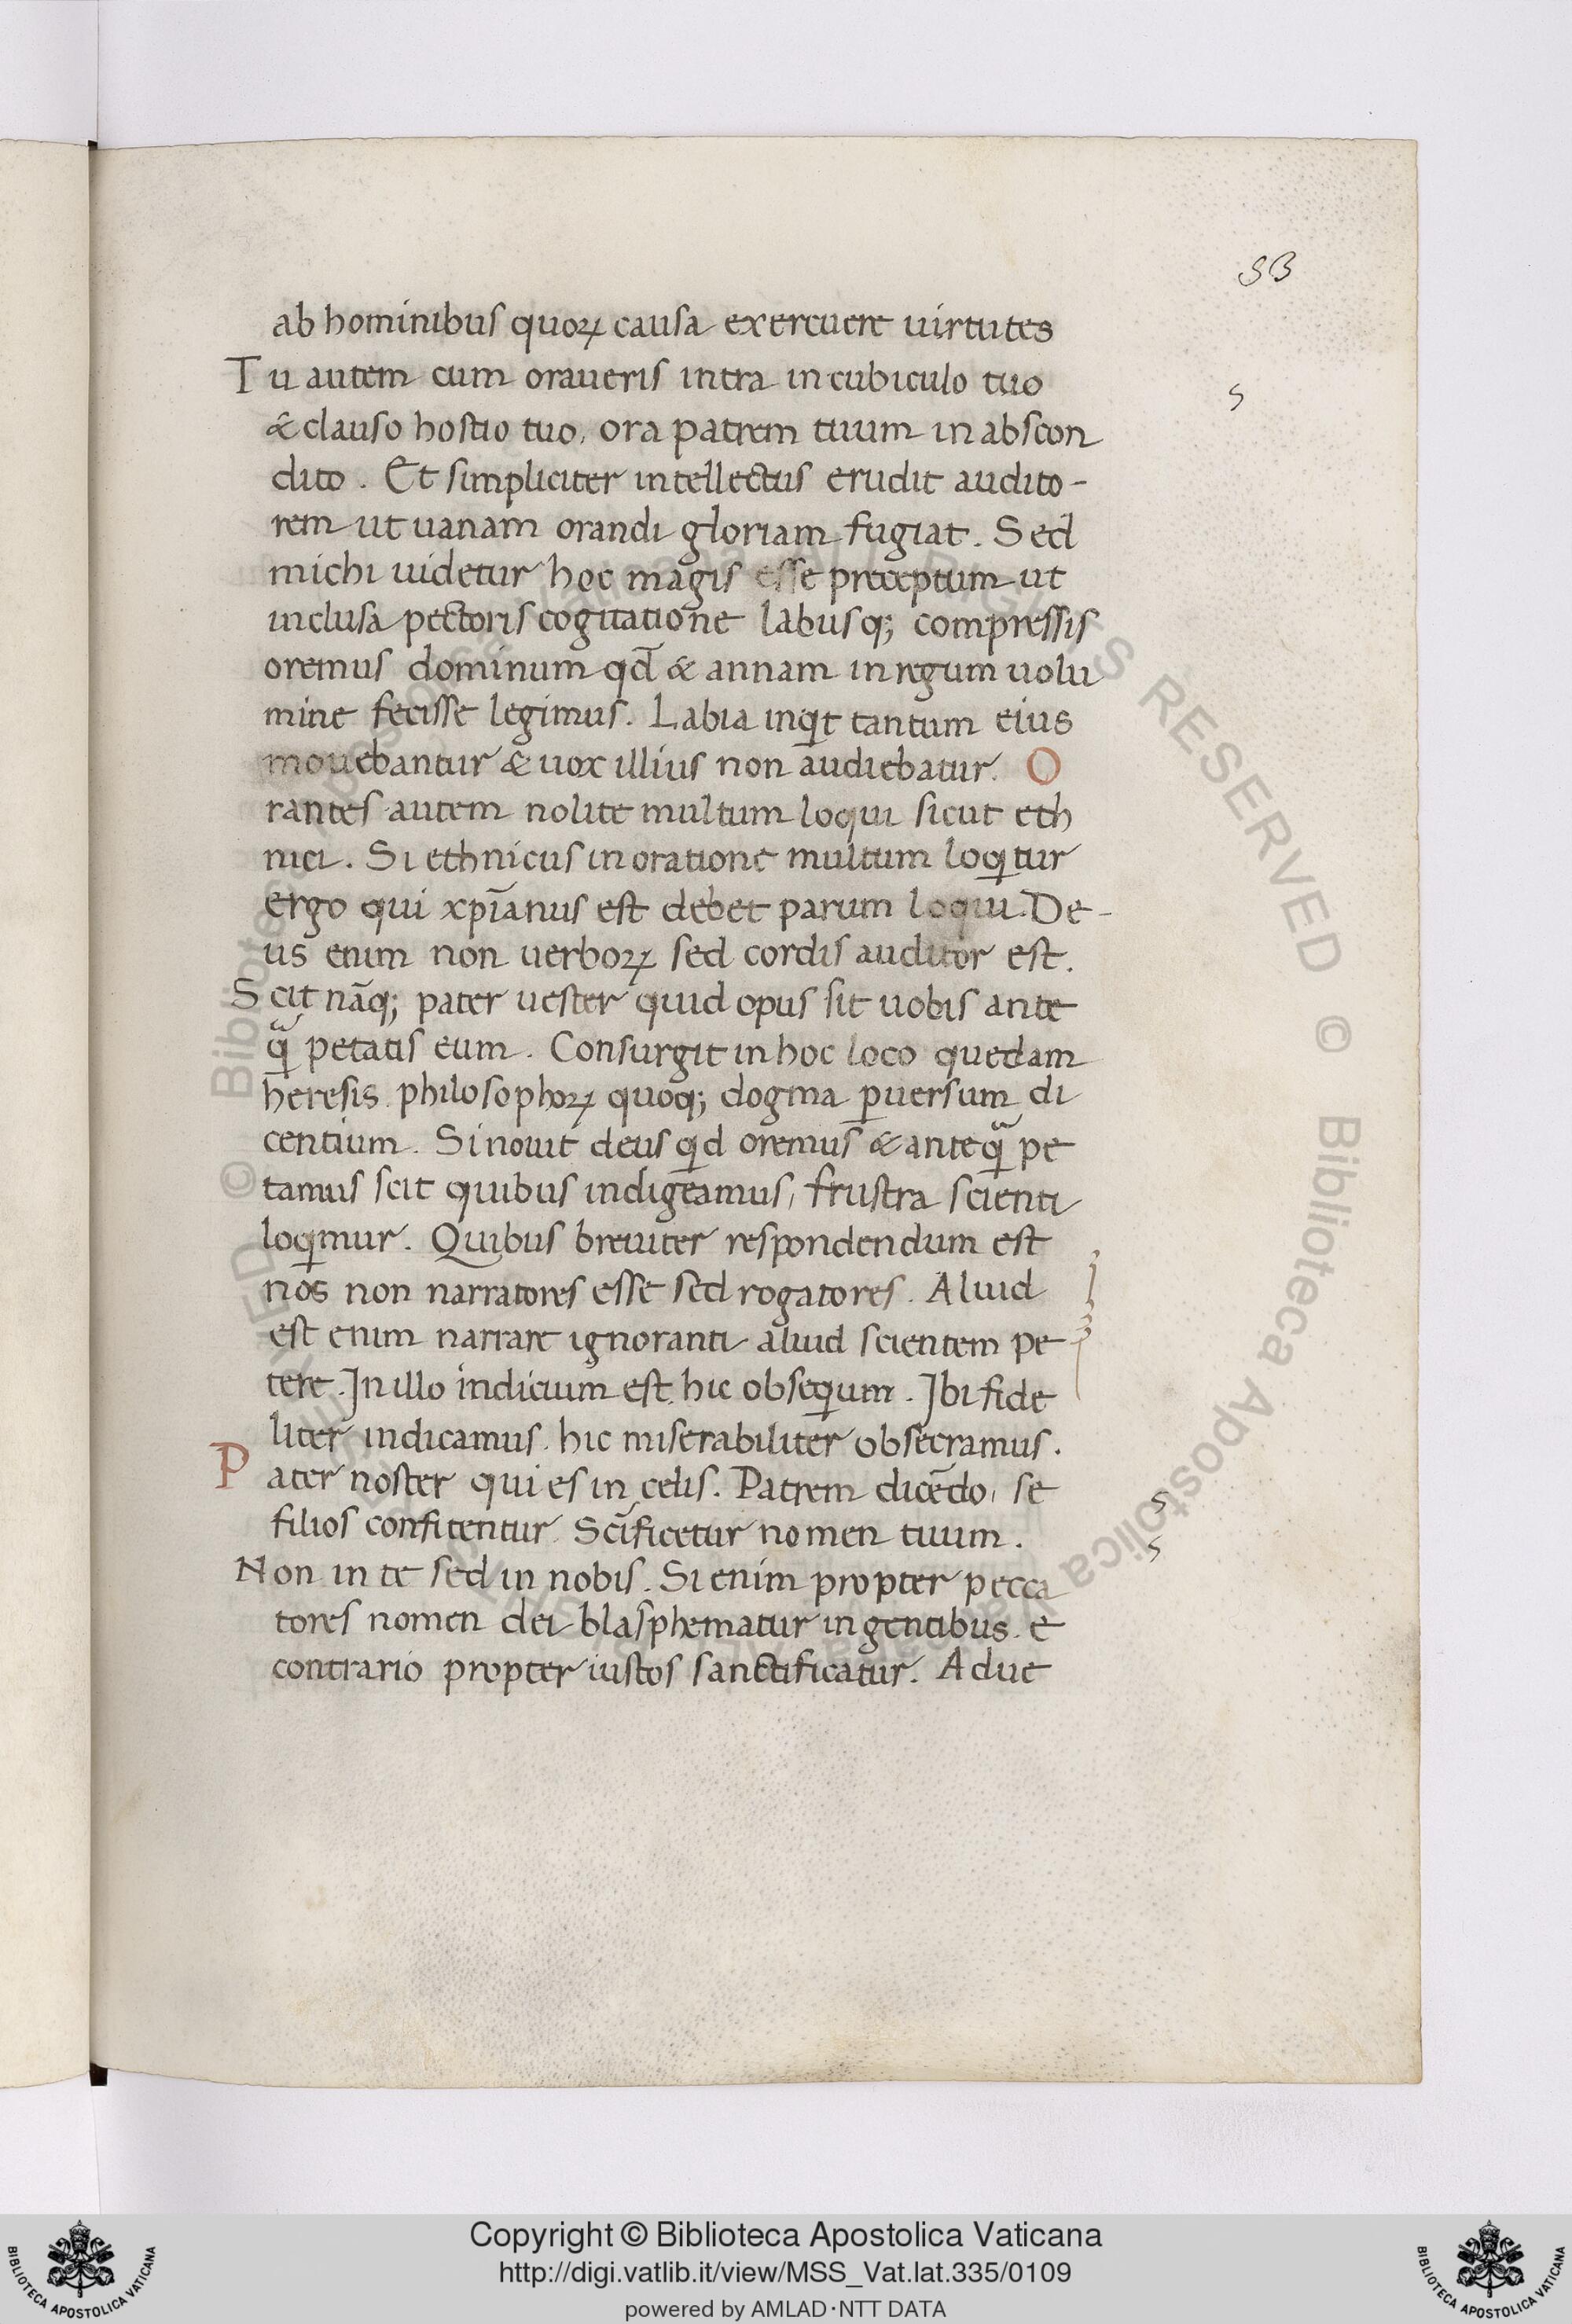 53
ab hominibus quoꝝ causa exercuere uirtutes
Tu autem cum oraueris intra in cubiculo tuo
& clauso hostio tuo, ora patrem tuum in abscon
dito. Et simpliciter intellectus erudit audito-
rem ut uanam orandi gloriam fugiat. Sed
michi uidetur hoc magis esse preceptum ut
inclusa pectoris cogitatione labiis q; compressis
oremus dominum qd̄ & annam in regum uolu
mine fecisse legimus. Labia inqͥt tantum eius
mouebantur & uox illius non audiebatur. O
rantes autem nolite multum loqui sicut eth
nici. Si ethnicus in oratione multum loqͥtur
ergo qui xp̄ianus est debet parum loqui. De-
us enim non uerboꝝ sed cordis auditor est.
Scit nāq; pater uester quid opus sit uobis ante
qᷓ petatis eum. Consurgit in hoc loco quedam
heresis philosophoꝝ quoq; dogma ꝑuersum di
centium. Si nouit deus qͥd oremus & anteqᷓ pe
tamus scit quibus indigeamus, frustra scienti
loqͥmur. Quibus breuiter respondendum est
nos non narratores esse sed rogatores. Aliud
est enim narrare ignoranti aliud scientem pe
tere. In illo indicium est hic obseqͥum. Ibi fide
liter indicamus. hic miserabiliter obsecramus.
Pater noster qui es in celis. Patrem dicēdo, se
filios confitentur. Sc̄ificetur nomen tuum.
Non in te sed in nobis. Si enim propter pecca
tores nomen dei blasphematur in gentibus. e
contrario propter iustos sanctificatur. Adue
© Biblioteca Apostolica Vaticana
ALL RIGHTS RESERVED
BIBLIOTECA APOSTOLICA VATICANA
Copyright © Biblioteca Apostolica Vaticana
http://digi.vatlib.it/view/MSS_Vat.lat.335/0109
powered by AMLAD·NTT DATA
BIBLIOTECA APOSTOLICA VATICANA